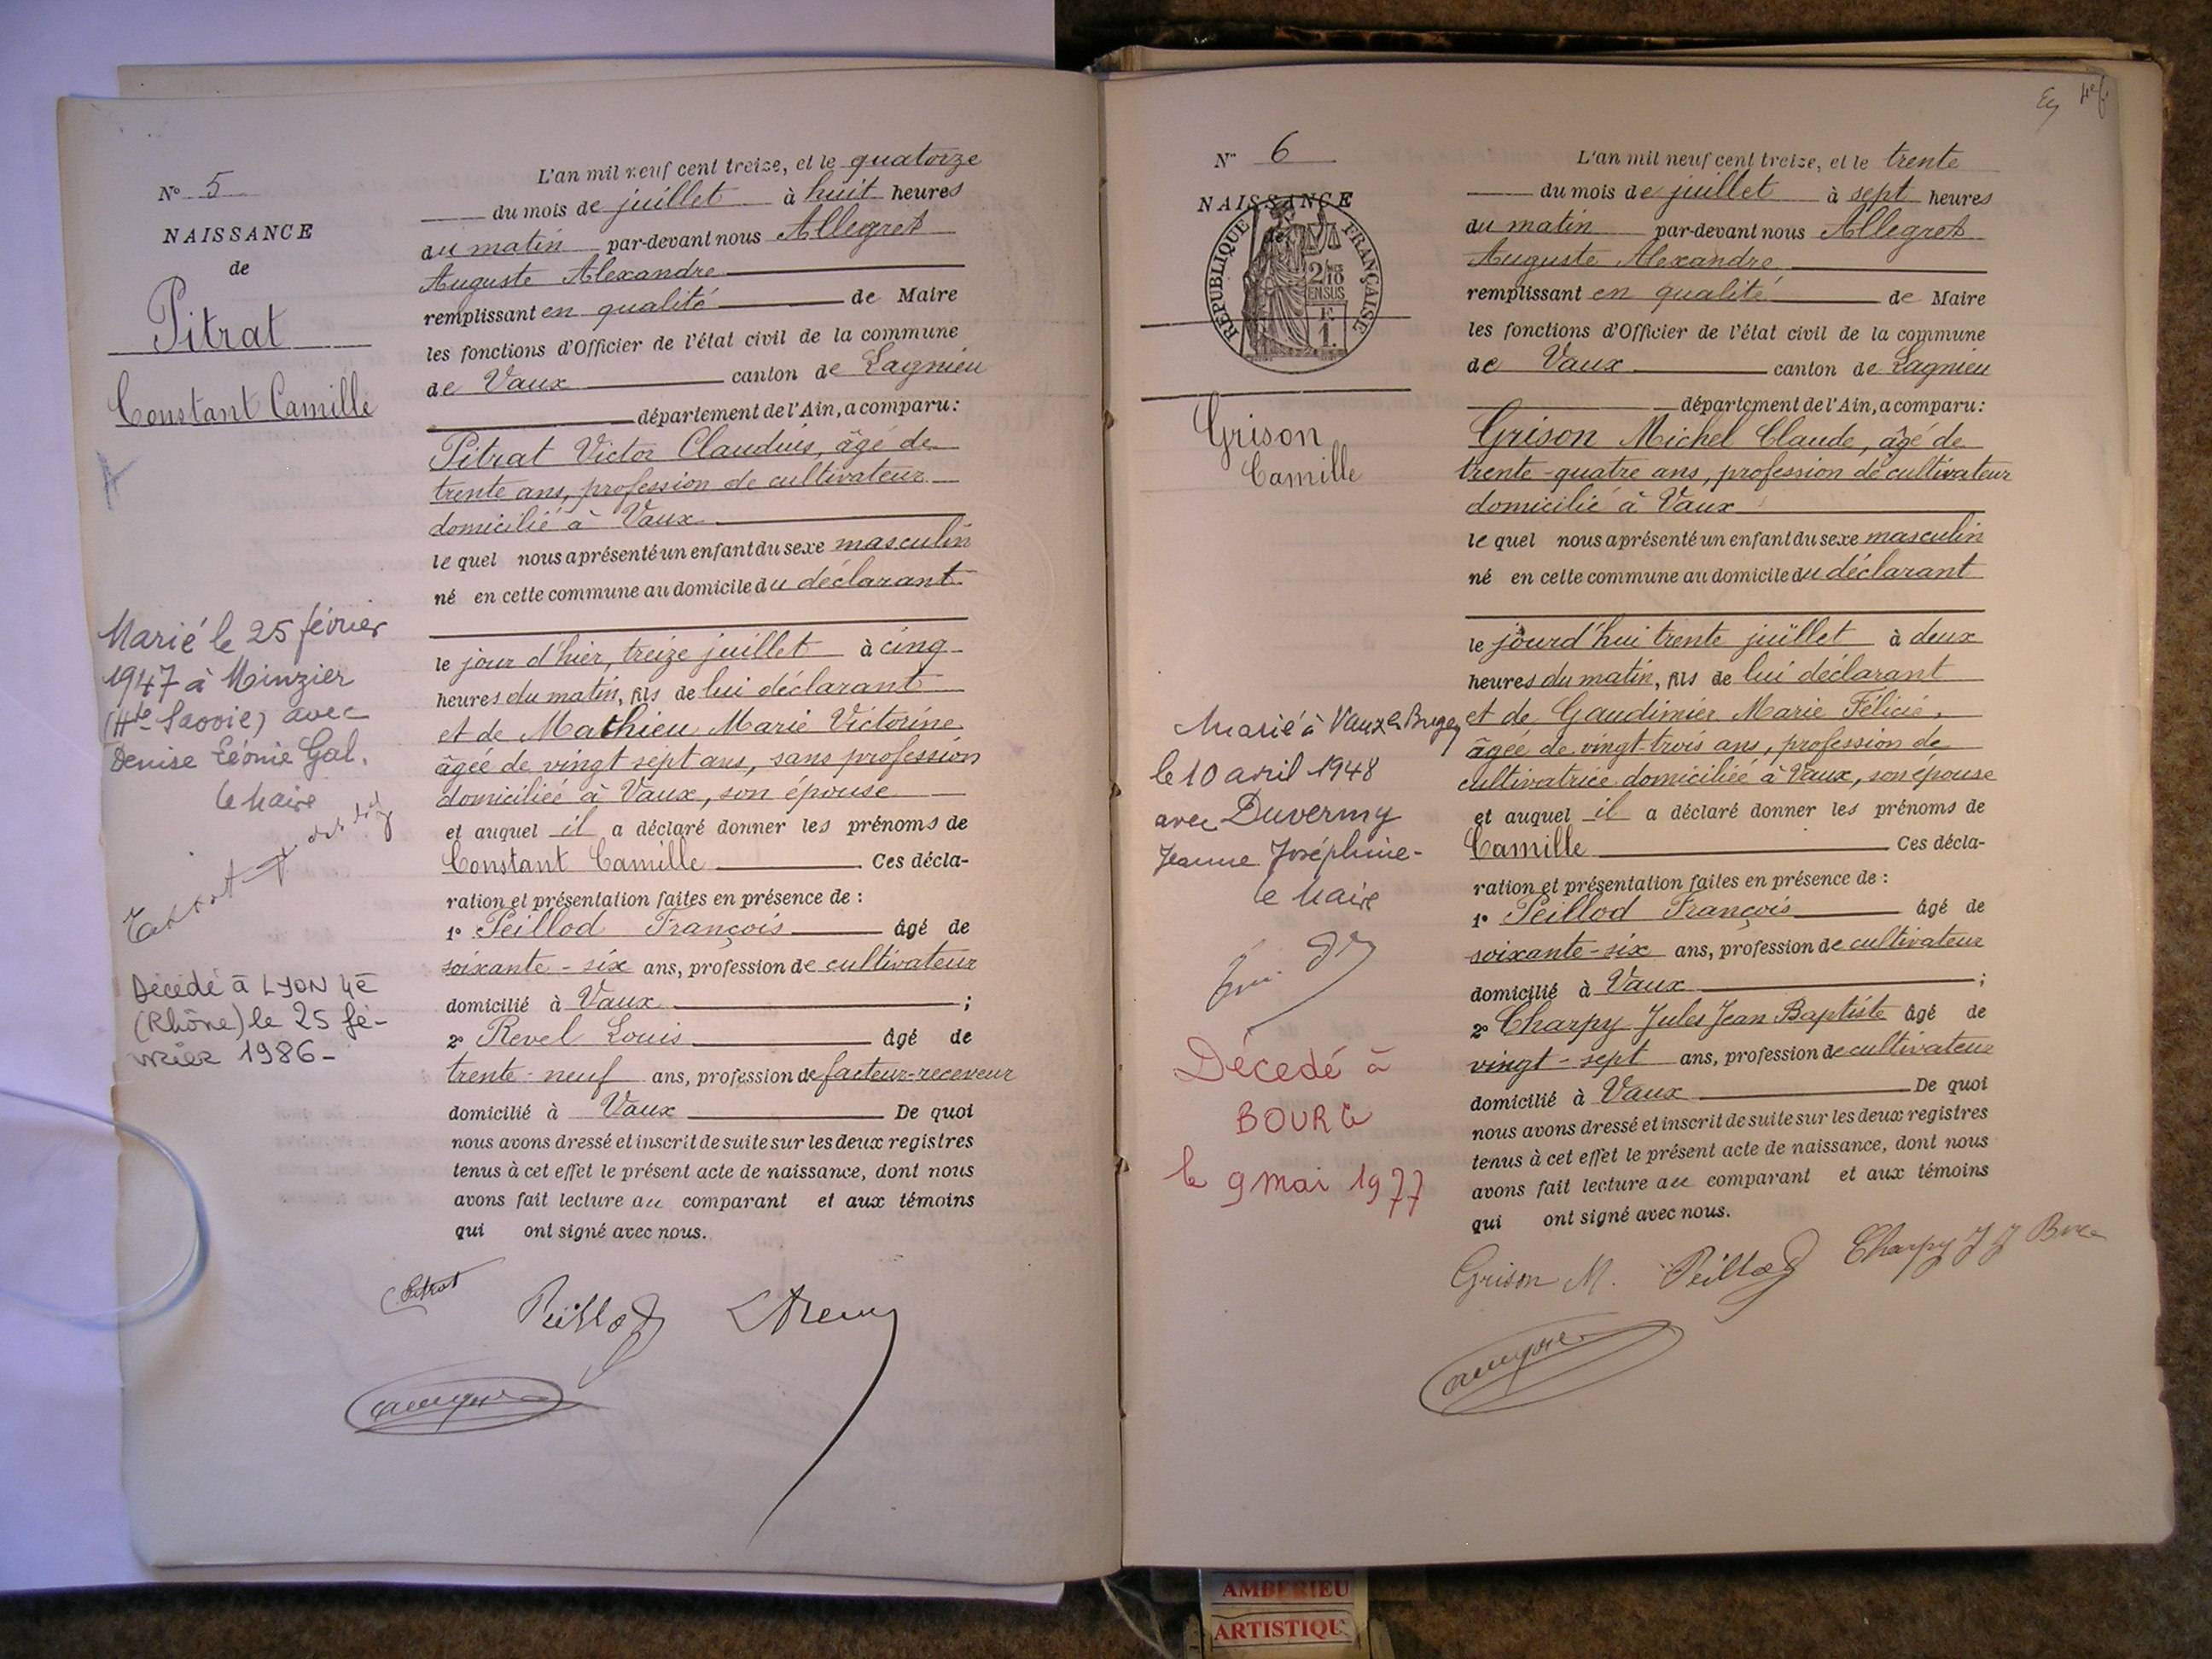 N° 5
NAISSANCE
de
Pitrat
Constant Camille
Marié le 25 février
1947 à Minzier
(Hte Savoie) avec
Denise Léonie Gal.
le Maire
Décédé à LYON 4e
(Rhône) le 25 fé-
vrier 1986-
L'an mil neuf cent treize, et le quatorze
du mois de juillet à huit heures
du matin par-devant nous Allegret
Auguste Alexandre
remplissant en qualité de Maire
les fonctions d'Officier de l'état civil de la commune
de Vaux canton de Lagnieu
département de l'Ain, a comparu:
Pitrat Victor Claudius, âgé de
trente ans, profession de cultivateur
domicilié à Vaux
le quel nous a présenté un enfant du sexe masculin
né en cette commune au domicile du déclarant
le jour d'hier, treize juillet à cinq
heures du matin, fils de lui déclarant
et de Mathieu Marie Victorine
âgée de vingt sept ans, sans profession
domiciliée à Vaux, son épouse
et auquel il a déclaré donner les prénoms de
Constant Camille Ces décla-
ration et présentation faites en présence de :
1° Peillod François âgé de
soixante-six ans, profession de cultivateur
domicilié à Vaux ;
2° Revel Louis âgé de
trente-neuf ans, profession de facteur-receveur
domicilié à Vaux De quoi
nous avons dressé et inscrit de suite sur les deux registres
tenus à cet effet le présent acte de naissance, dont nous
avons fait lecture au comparant et aux témoins
qui ont signé avec nous.
Pitrat Peillod
N° 6
NAISSANCE
de
RÉPUBLIQUE FRANÇAISE
2/10
EN SUS
F.
1.
Grison
Camille
Marié à Vaux en Bugey
le 10 avril 1948
avec Duvermy
Jeanne Joséphine-
le Maire
Décedé à
BOURG
le 9 mai 1977
L'an mil neuf cent treize, et le trente
du mois de juillet à sept heures
du matin par-devant nous Allegret
Auguste Alexandre
remplissant en qualité de Maire
les fonctions d'Officier de l'état civil de la commune
de Vaux canton de Lagnieu
département de l'Ain, a comparu:
Grison Michel Claude, âgé de
trente-quatre ans, profession de cultivateur
domicilié à Vaux
le quel nous a présenté un enfant du sexe masculin
né en cette commune au domicile du déclarant
le jourd'hui trente juillet à deux
heures du matin, fils de lui déclarant
et de Gaudimier Marie Félicie,
âgée de vingt-trois ans, profession de
cultivatrice domiciliée à Vaux, son épouse
et auquel il a déclaré donner les prénoms de
Camille Ces décla-
ration et présentation faites en présence de :
1° Peillod François âgé de
soixante-six ans, profession de cultivateur
domicilié à Vaux ;
2° Charpy Jules Jean Baptiste âgé de
vingt-sept ans, profession de cultivateur
domicilié à Vaux De quoi
nous avons dressé et inscrit de suite sur les deux registres
tenus à cet effet le présent acte de naissance, dont nous
avons fait lecture au comparant et aux témoins
qui ont signé avec nous.
Grison M. Peillod Charpy J J
AMBERIEU
ARTISTIQU